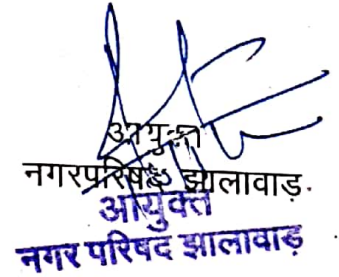 आयुक्त
नगरपरिषद झालावाड़.
आयुक्त
नगर परिषद झालावाड़